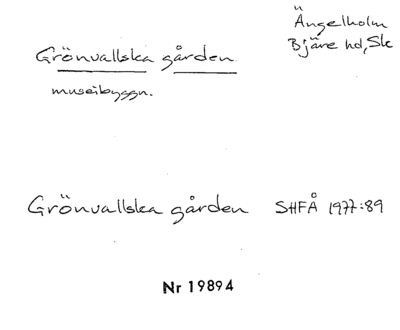 Grönvallska gården
museibyggn.
Ängelholm
Bjäre hd, Sk
Grönvallska gården SHFÅ 1977:89
Nr 19894